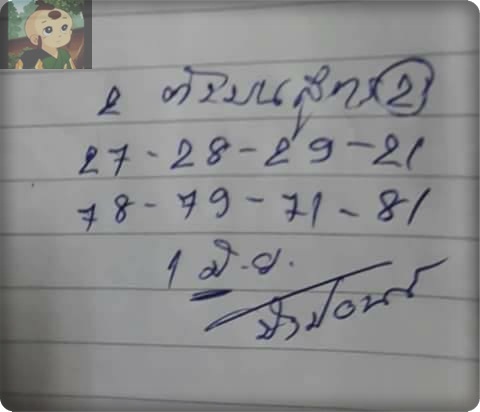 2 ตัวบนสูตร (2)
27 - 28 - 29 - 21
78 - 79 - 71 - 81
1 มิ.ย.